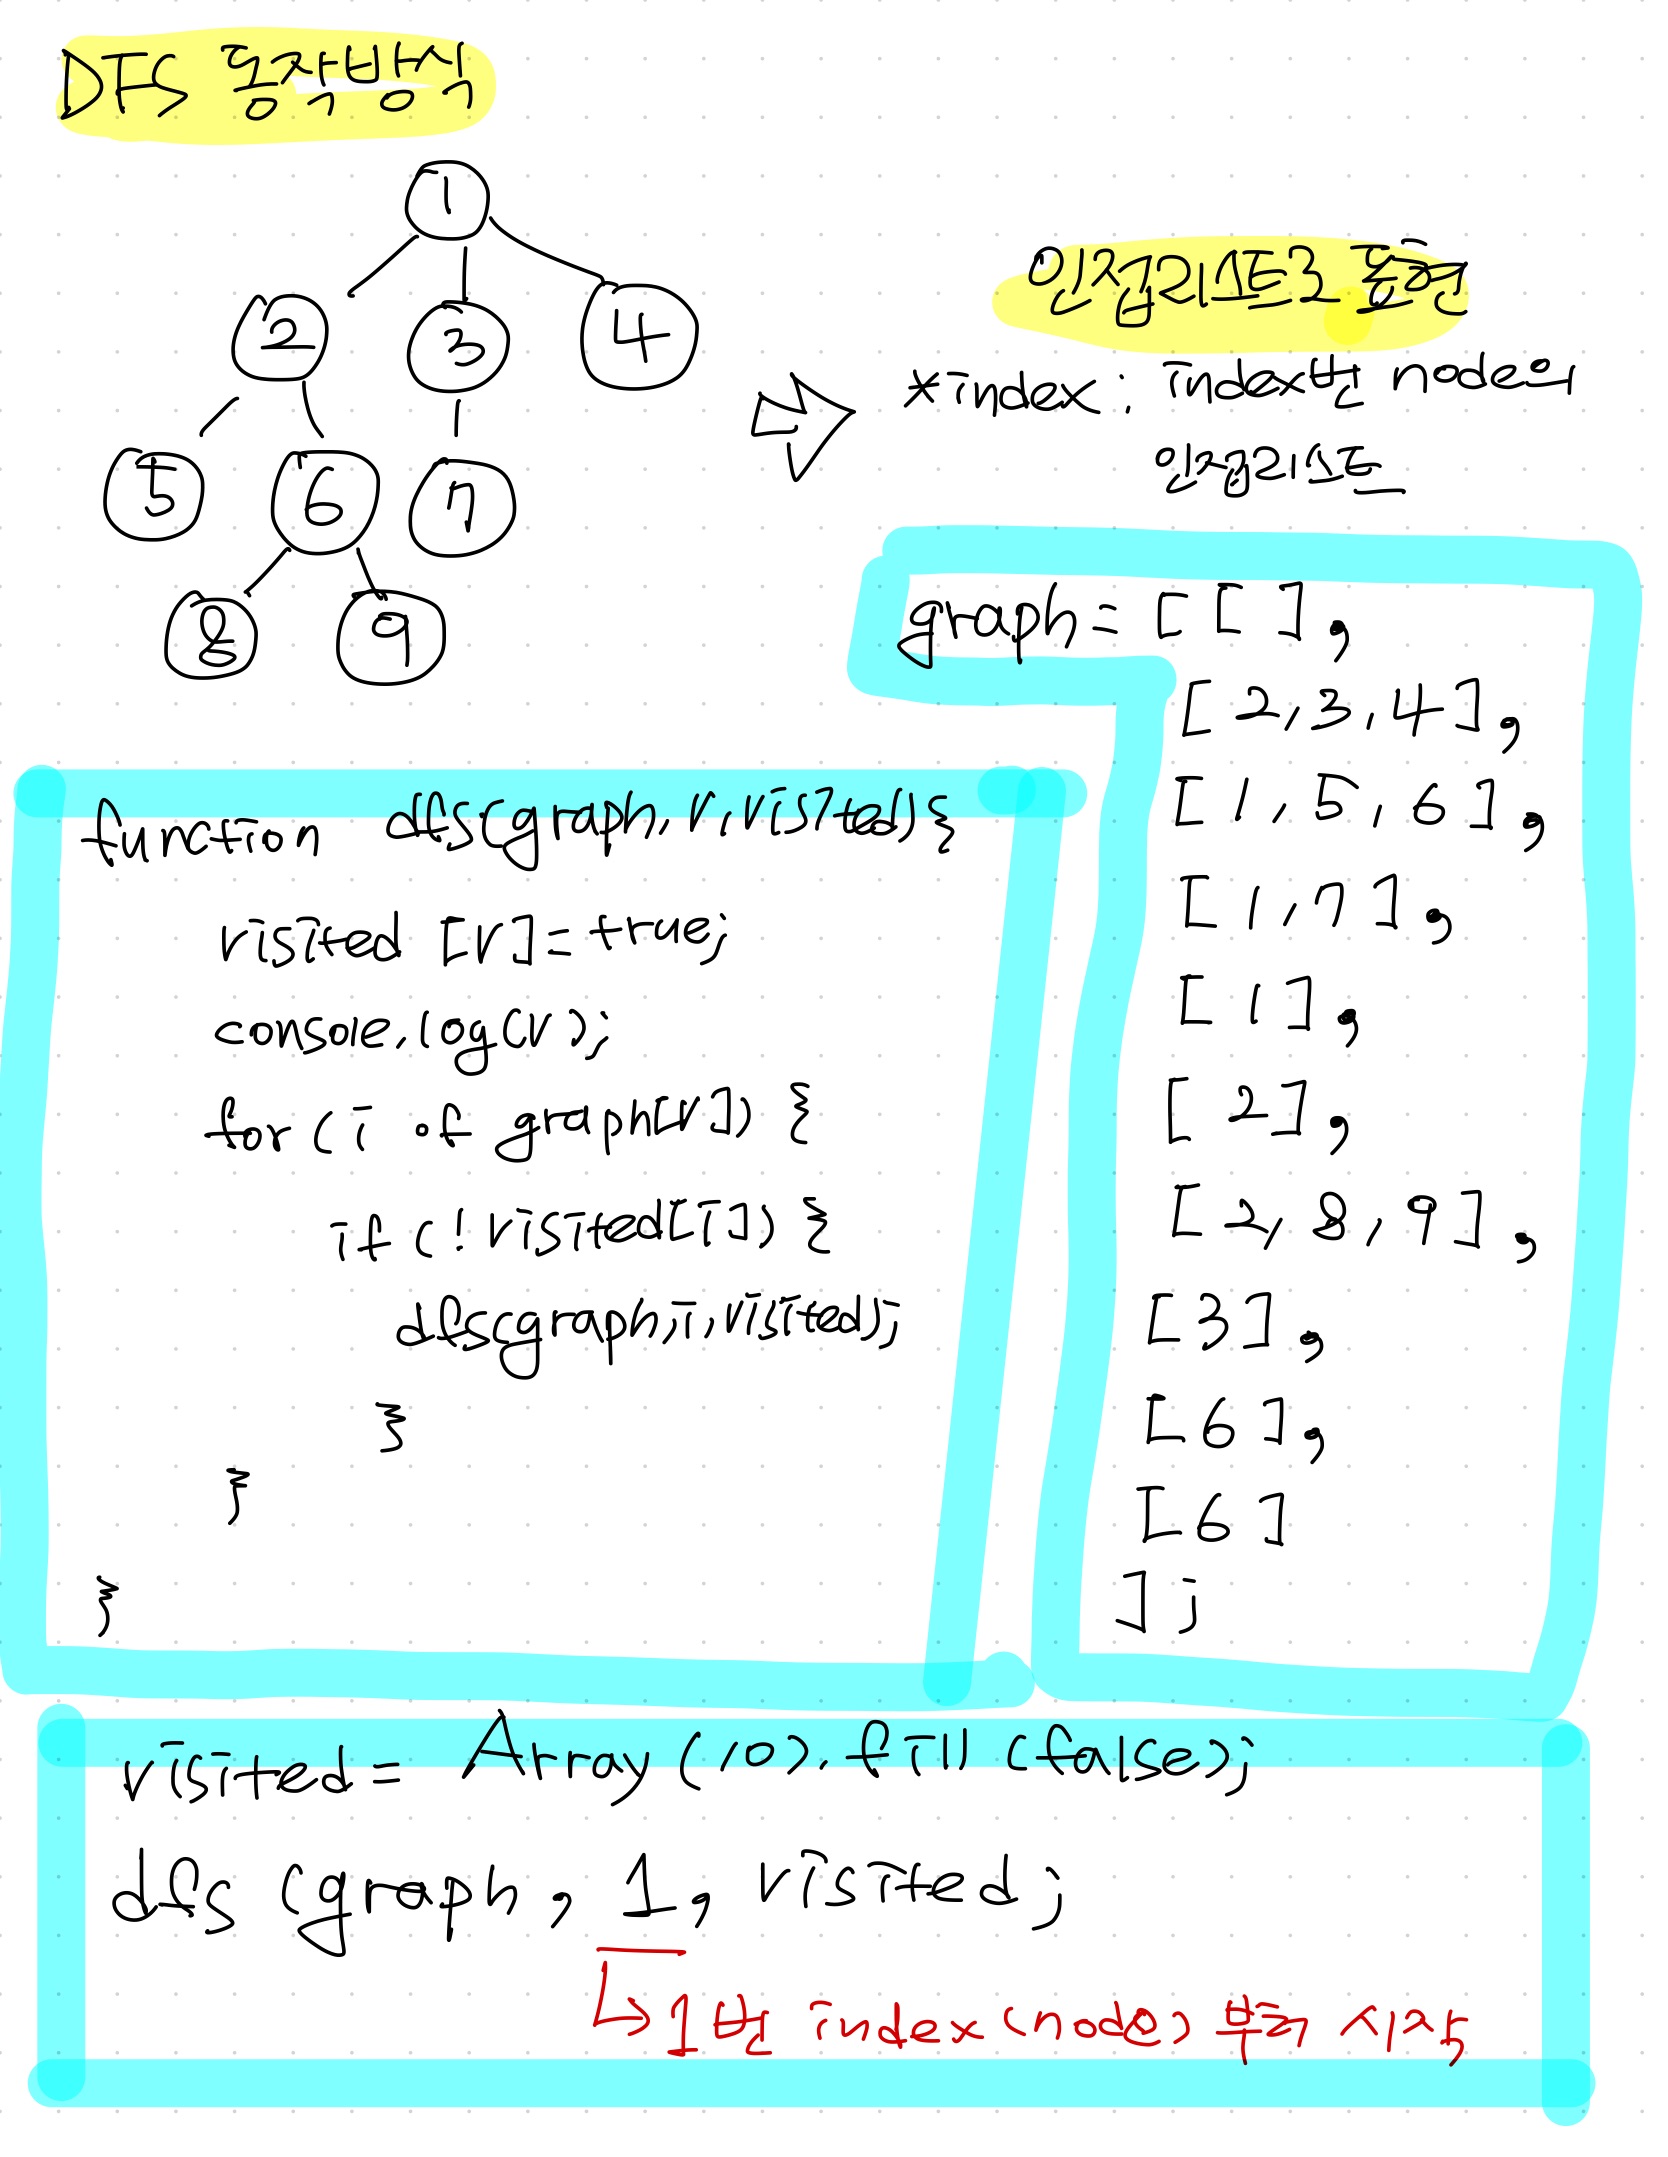 DFS 동작방식
1
2 3 4
5 6 7
8 9
인접리스트로 표현
*index : index번 node의
인접리스트
graph = [ [ ],
[ 2, 3, 4 ],
[ 1, 5, 6 ],
[ 1, 7 ],
[ 1 ],
[ 2 ],
[ 2, 8, 9 ],
[ 3 ],
[ 6 ],
[ 6 ]
];
function dfs(graph, v, visited) {
visited [v] = true;
console.log(v);
for ( i of graph[v]) {
if ( ! visited[i]) {
dfs(graph, i, visited);
}
}
}
visited = Array (10). fill (false);
dfs (graph, 1, visited;
↳ 1번 index (node) 부터 시작